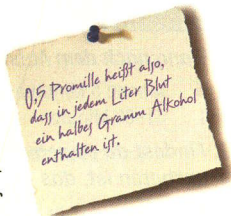 0,5 Promille heißt also,
dass in jedem Liter Blut
ein halbes Gramm Alkohol
enthalten ist.